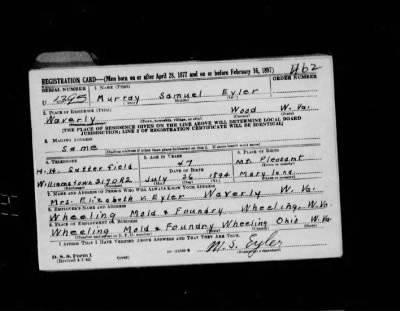 REGISTRATION CARD—(Men born on or after April 28, 1877 and on or before February 16, 1897) 462
SERIAL NUMBER 1. NAME (Print) ORDER NUMBER
U 1395 Murray Samuel Eyler
(First) (Middle) (Last)
2. PLACE OF RESIDENCE (Print)
Waverly Wood W. Va.
(Number and street) (Town, township, village, or city) (County) (State)
[THE PLACE OF RESIDENCE GIVEN ON THE LINE ABOVE WILL DETERMINE LOCAL BOARD
JURISDICTION; LINE 2 OF REGISTRATION CERTIFICATE WILL BE IDENTICAL]
3. MAILING ADDRESS
Same
[Mailing address if other than place indicated on line 2. If same insert word same]
4. TELEPHONE 5. AGE IN YEARS 6. PLACE OF BIRTH
H. H. Satterfield 47 Mt. Pleasant
DATE OF BIRTH (Town or county)
Williamstown July 26 1894 Maryland
(Exchange) (Number) (Mo.) (Day) (Yr.) (State or country)
7. NAME AND ADDRESS OF PERSON WHO WILL ALWAYS KNOW YOUR ADDRESS
Mrs. Elizabeth V. Eyler Waverly W. Va.
8. EMPLOYER'S NAME AND ADDRESS
Wheeling Mold & Foundry Wheeling, W. Va.
9. PLACE OF EMPLOYMENT OR BUSINESS
Wheeling Mold & Foundry Wheeling Ohio W. Va.
(Number and street or R. F. D. number) (Town) (County) (State)
I AFFIRM THAT I HAVE VERIFIED ABOVE ANSWERS AND THAT THEY ARE TRUE.
D. S. S. Form 1 M. S. Eyler
(Revised 4-1-42) (Registrant's signature)